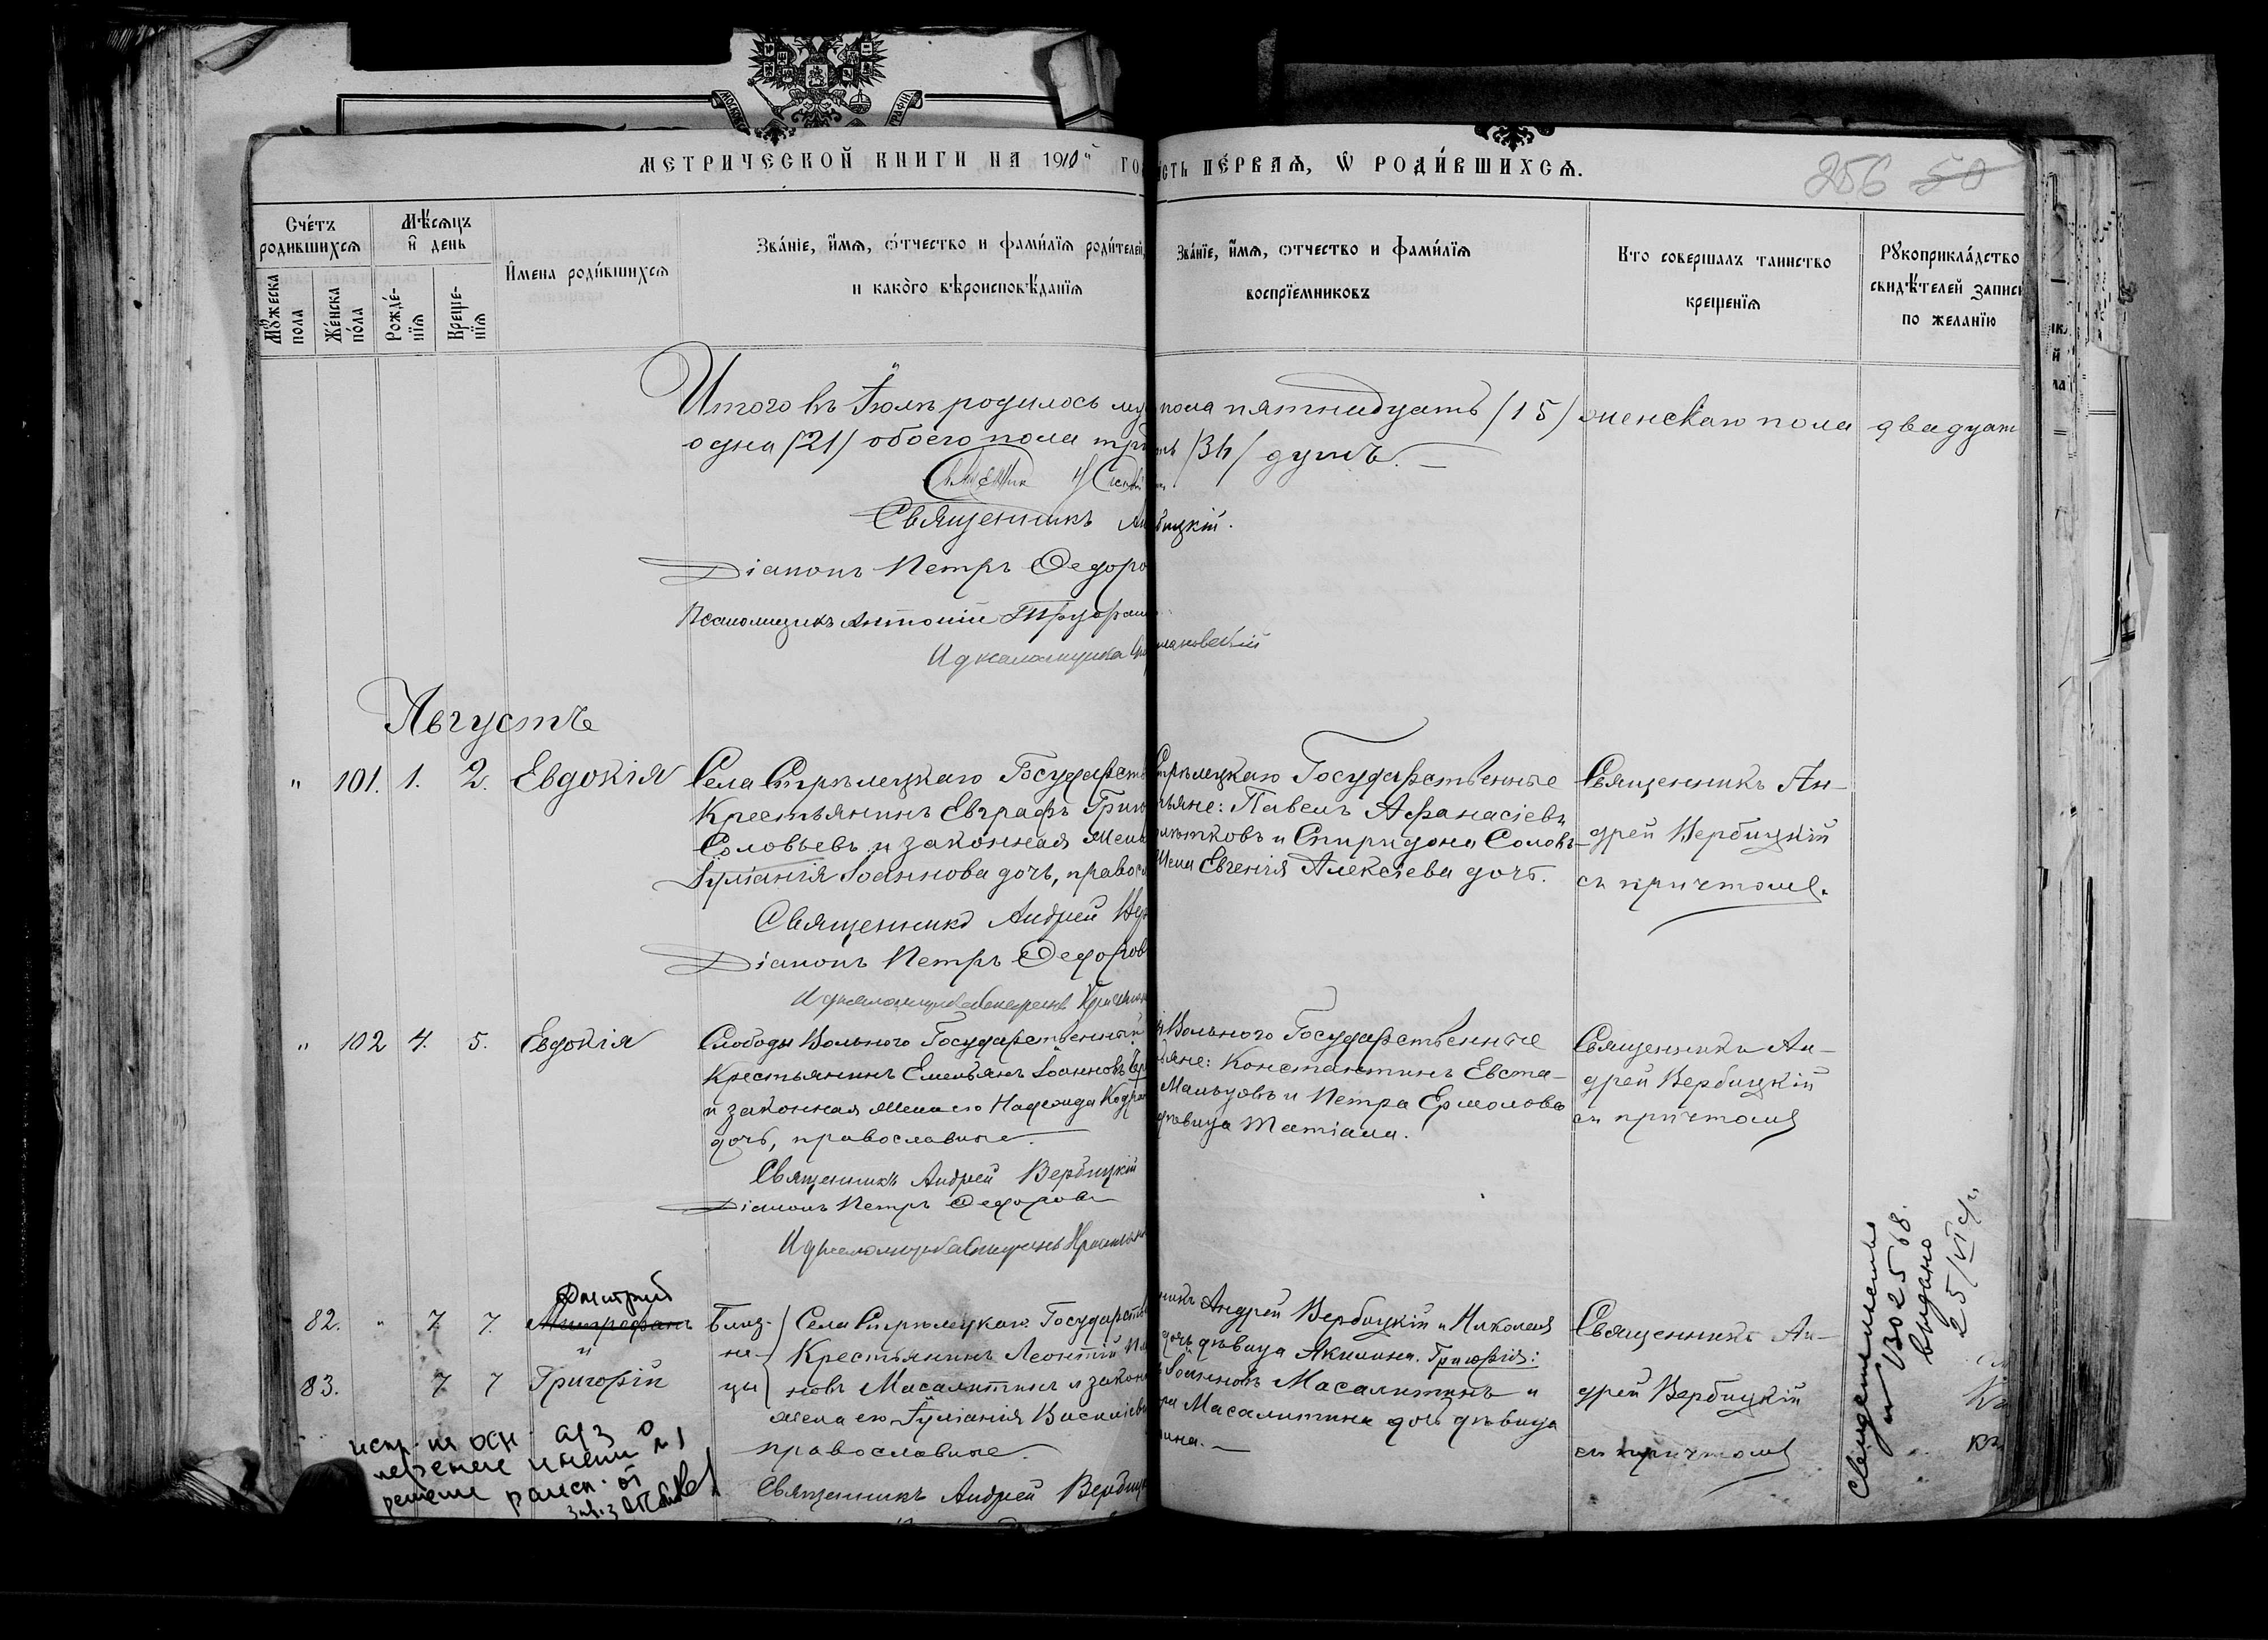 МЕТРИЧЕСКОЙ КНИГИ НА 1910й ГО
СТЬ ПЕ́РВАѦ, Ѡ РОДИ́ВШИХСѦ.
256 50
Сче́тъ родившихсѧ
Мѣ́сѧцъ и день
Мꙋ́жеска пола
Же́нска по́ла
Рожде́-нїѧ
Креще-нїѧ
И́мена роди́вшихсѧ
Зва́нїе, и́мѧ, ѻ́тчество и фами́лїѧ роди́телей,
и како́го вѣроисповѣ́данїѧ
Зва́нїе, и́мѧ, ѻтчество и фами́лїѧ
воспрїемниковъ
Кто совершалъ таинство
крещенїѧ
Рꙋкоприкла́дство
свидѣ́телей записи
по желанїю
Итого въ Іюлѣ родилось му пола пятнадцать (15) женскаго пола двадцат
одна (21) обоего пола тр ть (36) душъ. —
Священникъ А бицкій.
Діаконъ Петръ Федоро
Псаломщикъ Антоній
И д псаломщика мановскій
Августъ
" 101. 1. 2. Евдокія
Села Стрѣлецкаго Государств
Крестьянинъ Евграфъ Григо
Соловьевъ и законная жена
Іуліанія Іоаннова дочь, правосл
Священникъ Андрей Вер
Діаконъ Петръ Федоров
И д псаломщика
Стрѣлецкаго Государственные
тьяне: Павелъ Афанасіевъ
лѣтковъ и Спиридона Соловь-
жена Евгенія Алексіева дочь.
Священникъ Ан-
дрей Вербицкій
съ причтомъ.
" 102 4. 5. Евдокія
Слободы Вольного Государственный
Крестьянинъ Емельянъ Іоанновъ
и законная жена его Надежда Кодра
дочь, православные.
Священникъ Андрей Вербицкій
Діаконъ Петръ Федоровъ
И д псаломщика
Вольного Государственные
ьяне: Константинъ Евста-
Мальцовъ и Петра Ермолова
дѣвица Татіана.
Священникъ Ан-
дрей Вербицкій
съ причтомъ
Дмитрий
82. " 7 7. Митрофанъ
и
83. 7 7 Григорій
Близ-
не-
цы
Села Стрѣлецкаго Государств
Крестьянинъ Леонтій
новъ Масалитинъ и законн
жена его Іуліанія Василіева
православные.
Священникъ Андрей Вербицк
никъ Андрей Вербицкій и Николая
дочь дѣвица Акилина. Григорія:
Іоанновъ Масалитинъ и
ра Масалитина дочь дѣвица
ина. —
Священникъ Ан-
дрей Вербицкій
съ причтомъ
Свидетельство
№ 302568.
выдано
25/VI
испр. на осн.
перемене имени
решени